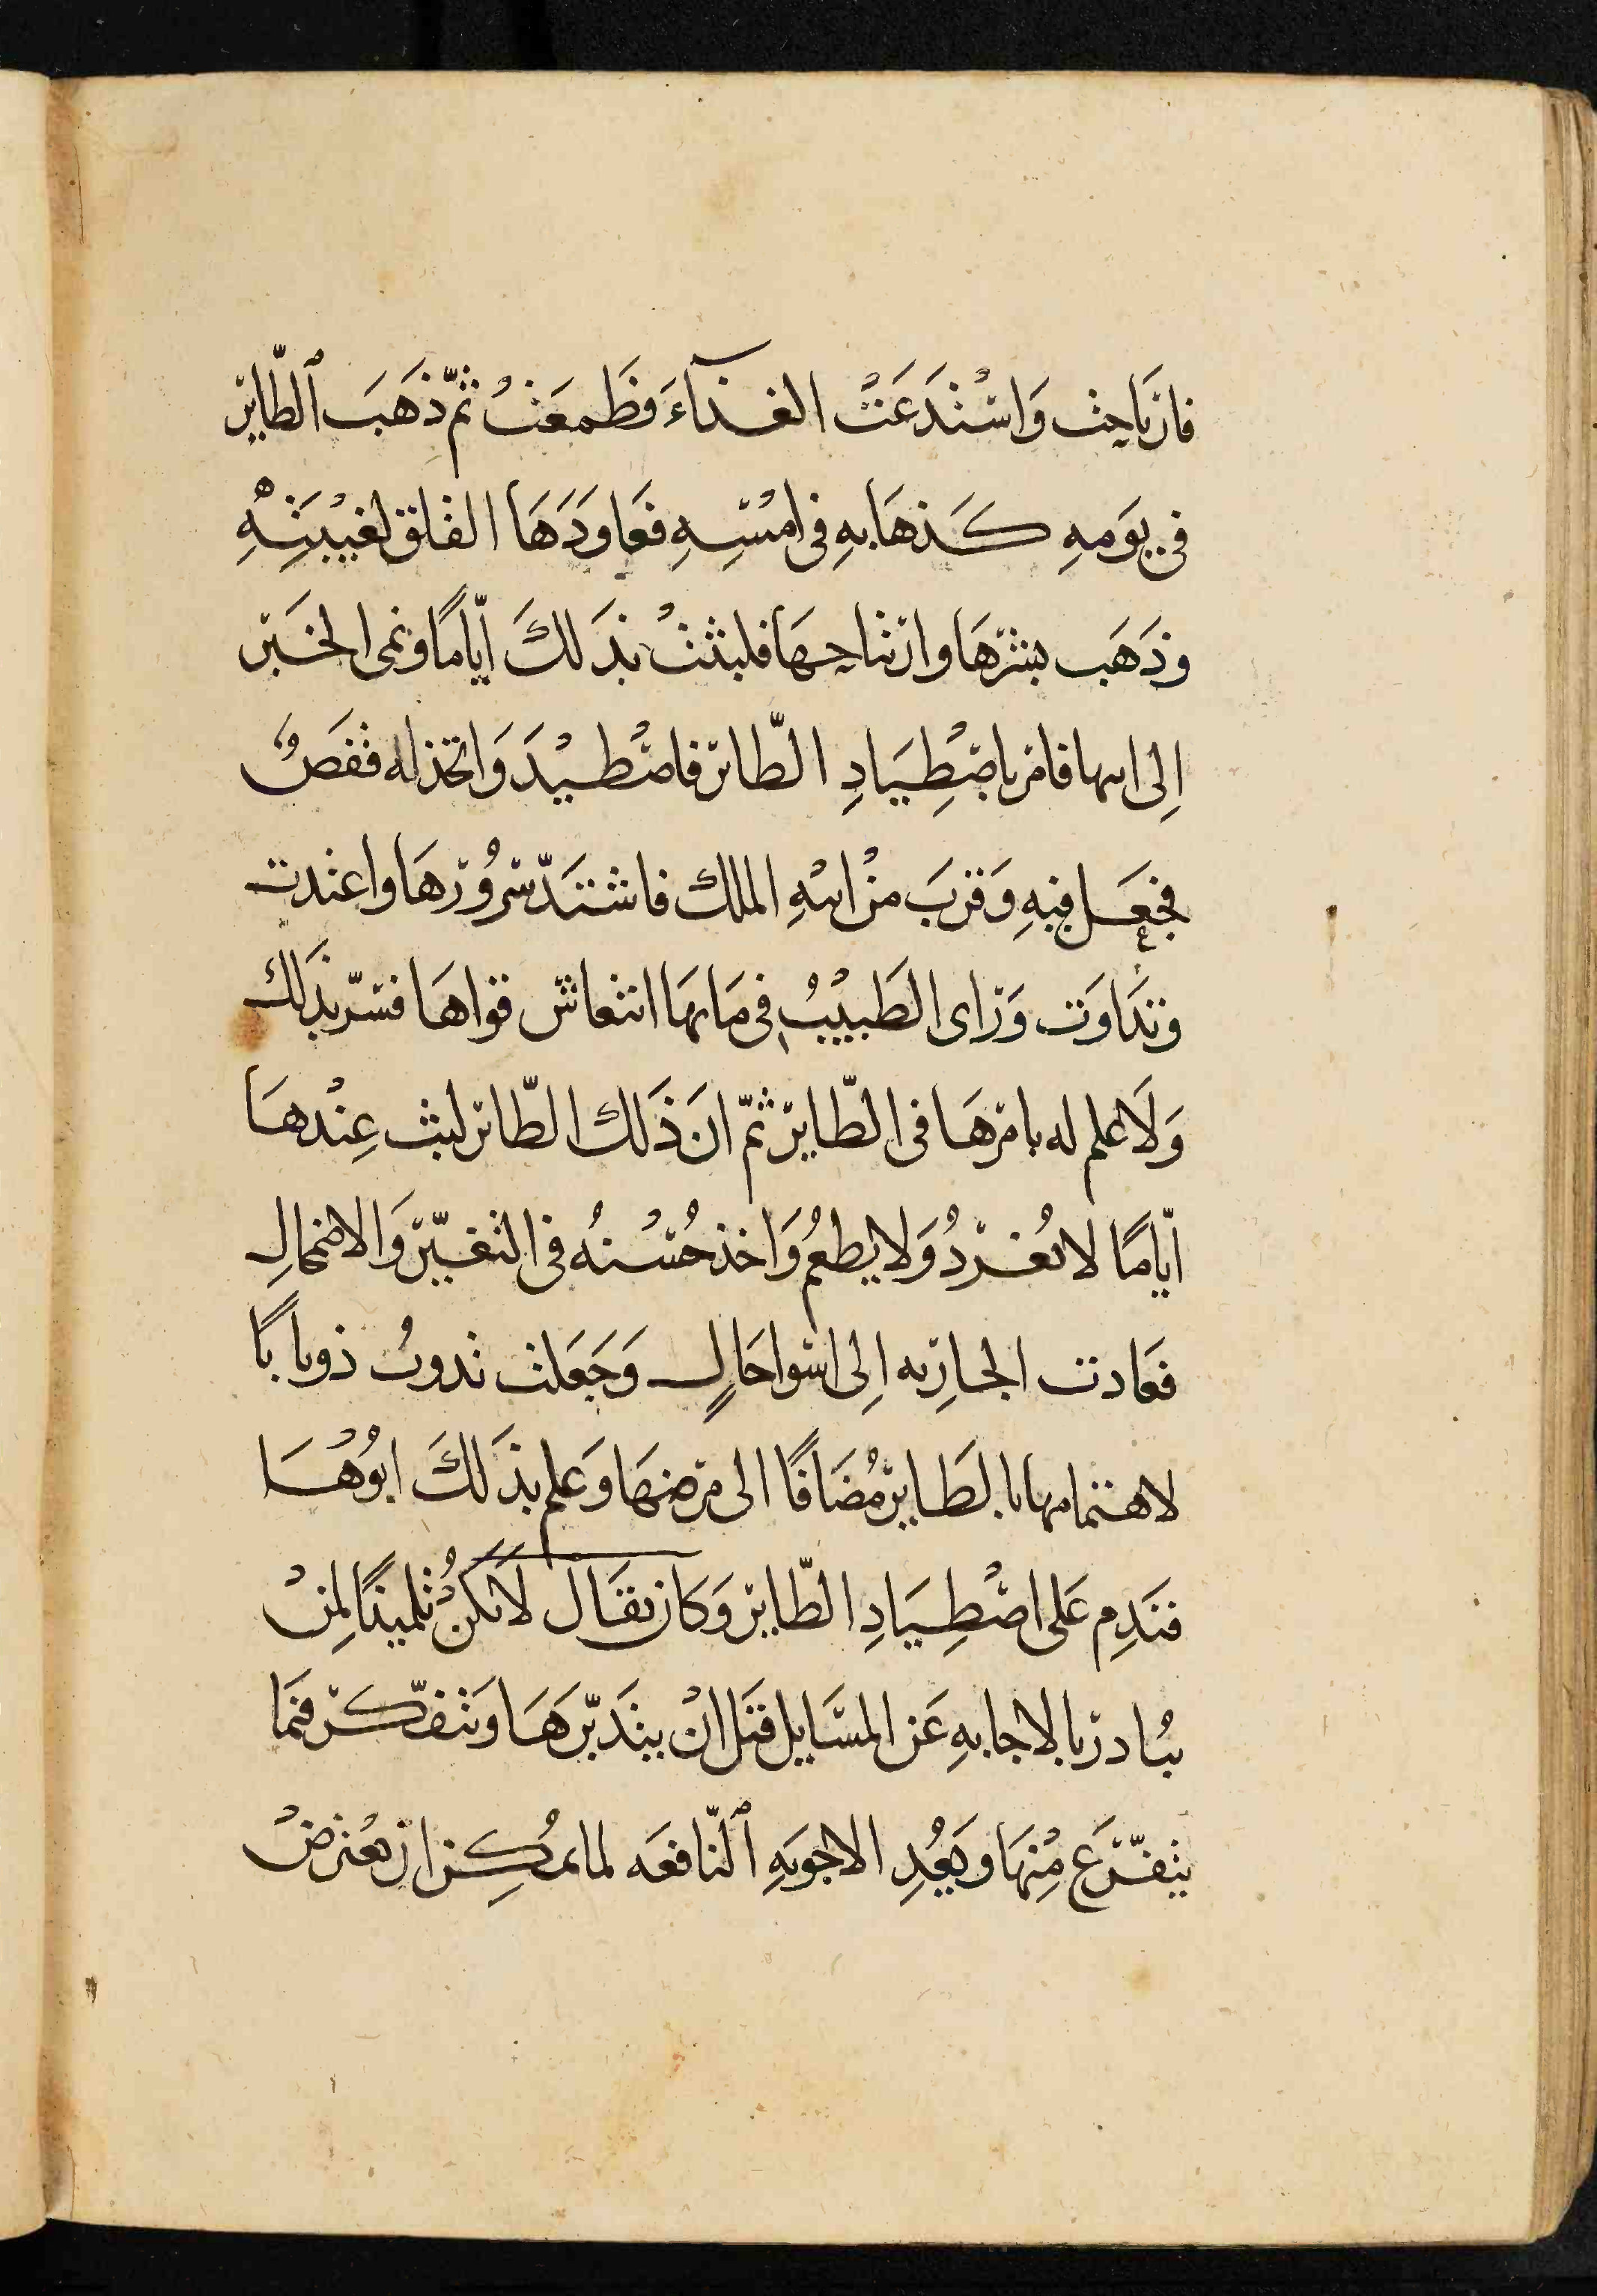 فارتاحت وَاسْتَدعَتْ الغذآءَ فطمعَتْ ثمّ ذَهَبَ الطّاير
في يَومهِ كَذهَابهِ في امْسِهِ فعَاودَهَا القلق لغَيْبَتِهِ
وذَهَب بشرهَا وارتياحهَا فلبثتْ بذَلكَ ايّامًا ونمى الخَبر
اِلى ابيها فامر باصْطِيَادِ الطّائر فاصْطيْدَ وَاتخذ له قفَصٌ
فجعَل فيهِ وَقربَ منْ ابنهِ الملك فاشتَدّ سُرُورهَا واغتدت
وتدَاوَت وَراى الطَبيْبُ في مَا بهَا انتعاش قواهَا فسرّ بذَلك
وَلَا علم له بامرهَا في الطّاير ثمّ ان ذَلك الطّائر لبث عِنْدهَا
ايّامًا لا يُغردُ وَلا يطعمُ وَاخذ حُسْنُه في التغيّر وَالاضمحالِ
فعَادت الجَارِيه اِلى اسوا حَالٍ وَجَعَلت تذوبُ ذوبا بًا
لاهتمامها با لطَاير مُضَافًا الى مرضهَا وَعلم بذَلكَ ابُوْهَا
فنَدِم عَلى اصْطِيَادِ الطّاير وَكان يقَال لَا تكنْ تلميذًا لمِنْ
يُبادر بالاجابهِ عَن المسَايل قبَل انْ يتَدبّرهَا وَيتفكّر فيمَا
يتفرّع مِنْهَا وَيعُدِ الاجوبَهِ النّافعَه لما يمُكِن ان يعْترضْ